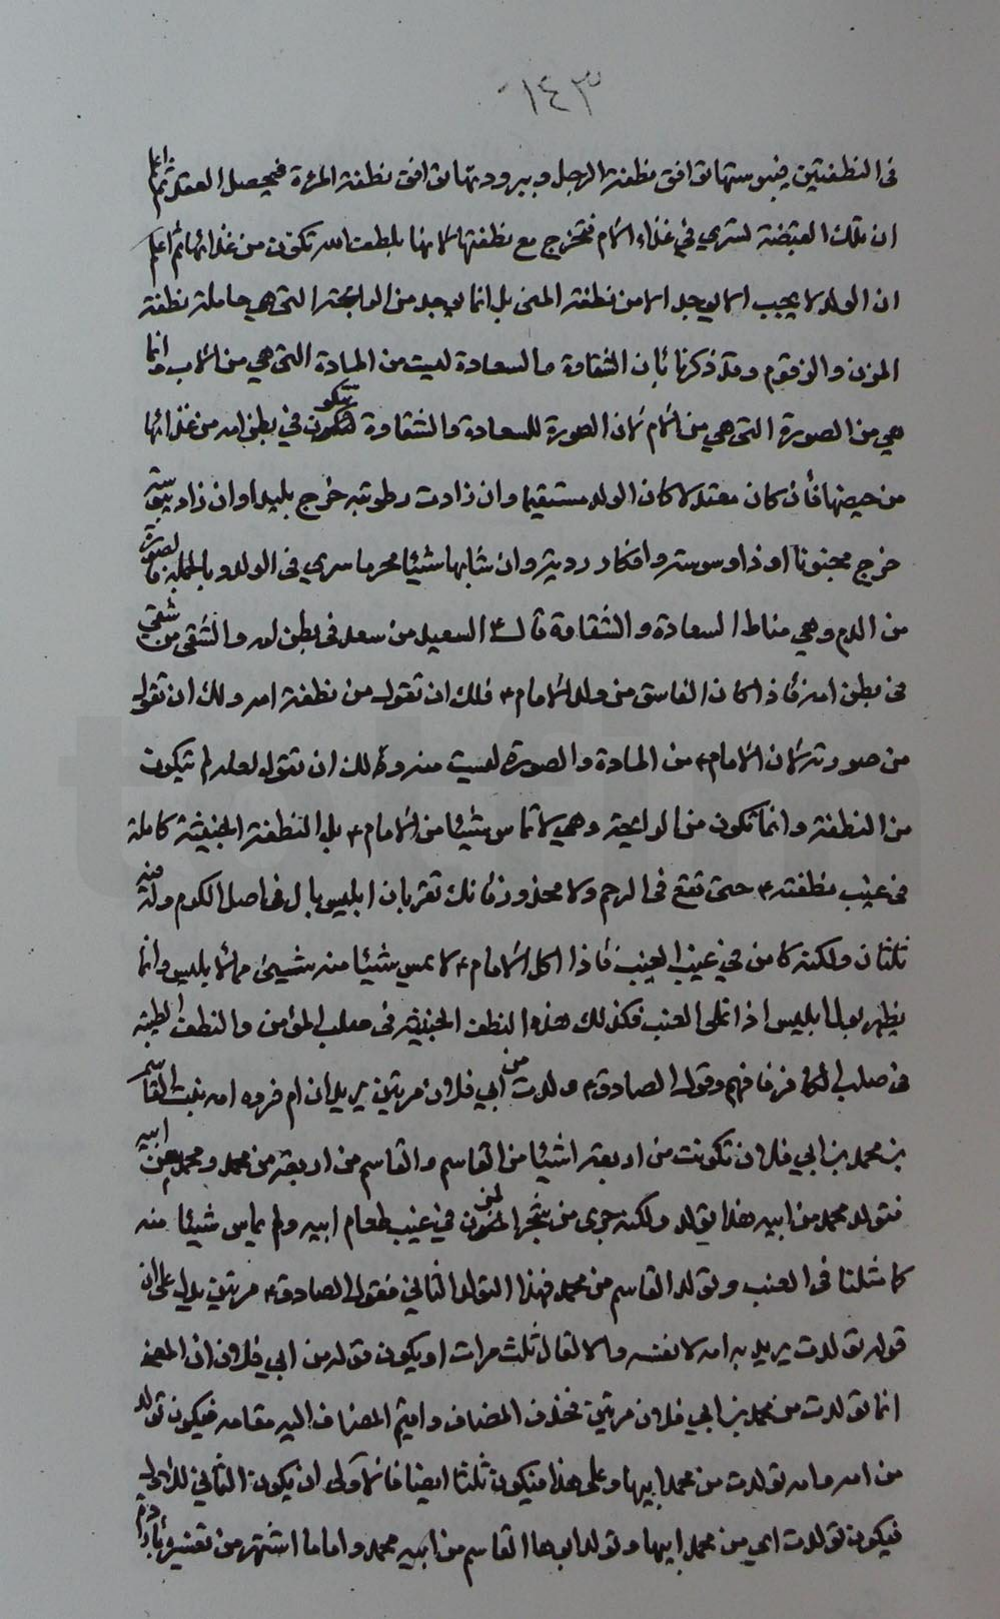 ١٤٣
فى النطفتين فيبوستها توافق نطفة الرجل وبرودتها توافق نطفة المرءة فيحصل العقد ثم اعلم
ان تلك القبضة تسري في غذاء الام فتخرج مع نطفتها لا انها بلطف الله تكون من غذائها ثم اعلم
ان الولد لا يجب الا يوجد الا من نطفة المنى بل انما يوجد من الرائحة التى هي حاملة نطفة
المزن والزقوم وقد ذكرنا بان الشقاوة والسعادة ليست من المادة التى هي من الاب وانما
هي من الصورة التى هي من الام لان الصورة للسعادة والشقاوة تتكون في بطن امه من غذائها
من حيضها فأن كان معتدلا كان الولد مستقيما وان زادت رطوبته خرج بليدا وان زاد يبوسته
خرج مجنونا او ذا وسوسة وافكار ردية وان شابها شيئا محرما سرى فى الولد وبالجملة فالصورة
من الدم وهي مناط السعادة والشقاوة قال ع السعيد من سعد فى بطن امه والشقى من شقى
فى بطن امه فأذا كان الفاسق من ولد الامام ع فلك ان تقول من نطفة امه ولك ان تقول
من صورته لان الامام ع من المادة والصورة ليست منه ولك ان تقول لعله لم يتكون
من النطفة وانما تكون من الرائحة وهي لا تماس شيئا من الامام ع بل النطفة الخبيثة كاملة
فى غيب نطفته ع حتى تقع فى الرحم ولا محذور فأنك تقر بان ابليس بال فى اصل الكرم وله منه
ثلثان ولكنه كامن في غيب العنب فأذا اكل الامام ع لا يمس شيئا منه بشيئ مما لابليس وانما
يظهر بول ابليس اذا غلى العنب فكذلك هذه النطف الخبيثة فى صلب المؤمن والنطف الطيبة
فى صلب الكافر فافهم وقول الصادق ع ولدت من ابي فلان مرتين يريد ان ام فروه امه بنت القاسم
بن محمد بن ابي فلان تكونت من اربعة اشيئا من القاسم والقاسم من اربعة من محمد ومحمد من ابيه
فتولد محمد من ابيه هذا تولد ولكنه جرى من شجر المزن في غيب طعام ابيه ولم يماس شيئا منه
كما مثلنا فى العنب وتولد القاسم من محمد فهذا التولد الثاني فقول الصادق ع مرتين يدل على ان
قوله تولدت يريد به امه لا نفسه والا لقال ثلث مرات او يكون قوله من ابي فلان ان المعنى
انما تولدت من محمد بن ابي فلان مرتين فحذف المضاف واقيم المضاف اليه مقامه فيكون تولد
من امه وامه تولدت من محمد ابيها وعلى هذا فيكون ثلثا ايضا فالاولى ان يكون الثاني للاول
فيكون تولدت امي من محمد ابيها وتولد ابوها القاسم من ابيه محمد واما ما اشتهر من تفسير